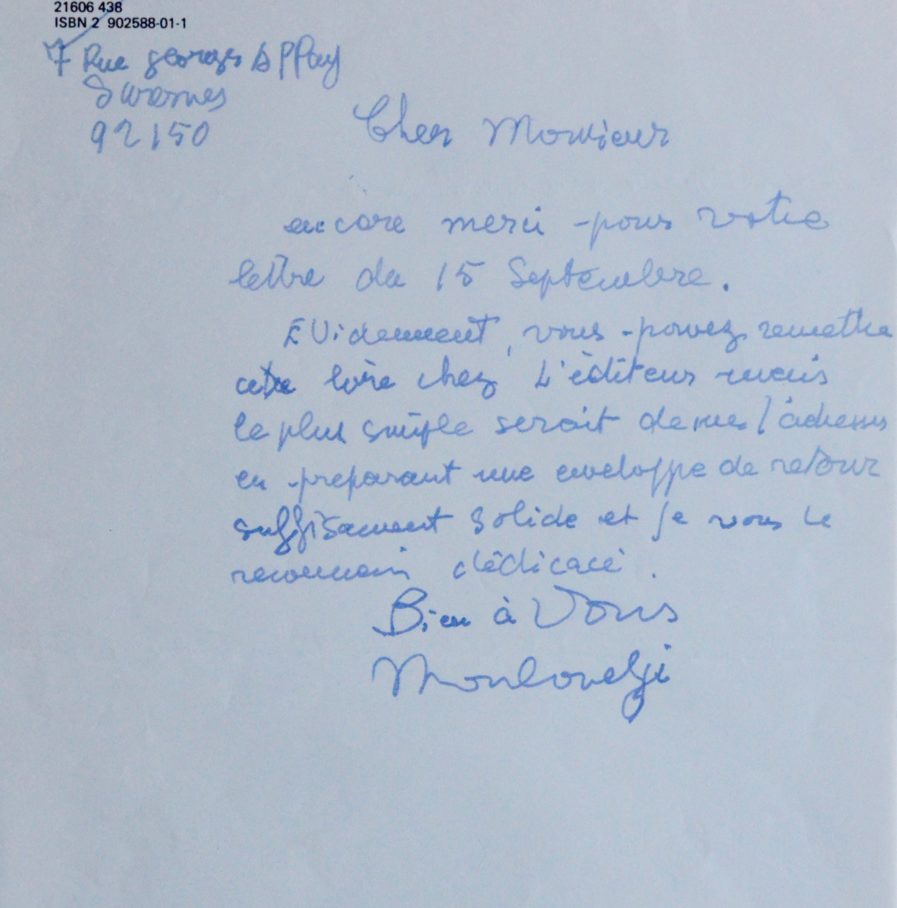 21606 438
ISBN 2 902588-01-1
7 Rue georges Appay
Suresnes
92150
Cher Monsieur
encore merci pour votre
lettre du 15 Septembre.
Evidemment, vous pouvez remettre
chez L'éditeur mais
le plus simple serait de me l'adresser
en preparant une enveloppe de retour
suffisament solide et je vous le
dédicacé.
Bien à Vous
Mouloudji